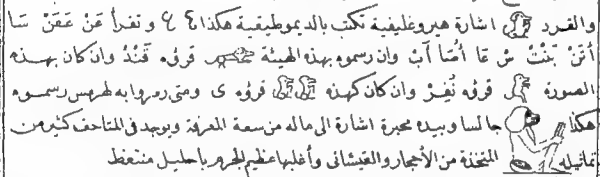 والقرد اشارة هيروغليفية تكتب بالديموطيقية هكذا وتقرأ عَنْ عَقَنْ سَا
أتَنْ بَنْتْ سْ عَا أُمَّا آبْ وان رسموه بهذه الهيئة قرؤه قَنْدْ وان كان بهذه
الصورة قرؤه نُفِرْ وان كان كهذه قرؤه ى ومتى رمزوا به لهرمس رسموه
هكذا جالسا وبيده محبرة اشارة الى ماله من سعة المعرفة ويوجد فى المتاحف كثير من
تماثيله المتخذة من الأحجار والقيشانى وأغلبها عظيم الجرم باحليل منتعظ